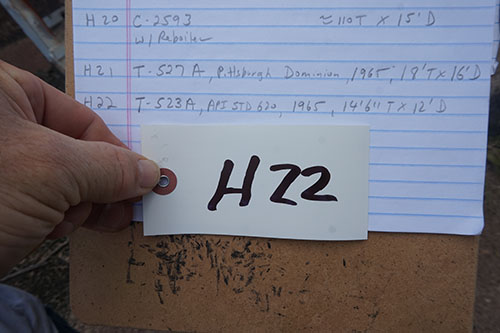 H20 C-2593 ≈110T X 15'D
w/ Reboiler
H21 T-527A, Pittsburgh Dominion, 1965, 18'T X 16'D
H22 T-523A, API STD 620, 1965, 14'6"T X 12'D
H22